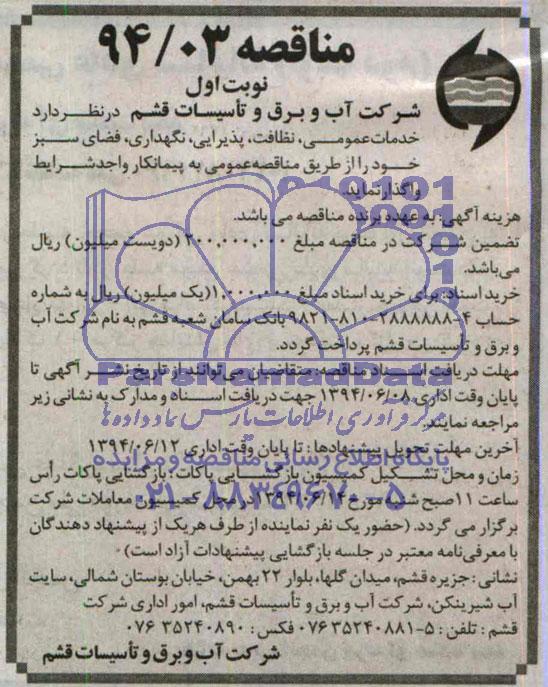 مناقصه ۹۴/۰۳
نوبت اول
شرکت آب و برق و تأسیسات قشم درنظردارد
خدمات عمومی، نظافت، پذیرایی، نگهداری، فضای سبز
خود را از طریق مناقصه عمومی به پیمانکار واجد شرایط
واگذار نماید.
هزینه آگهی: به عهده برنده مناقصه می باشد.
تضمین شرکت در مناقصه مبلغ ۲۰۰,۰۰۰,۰۰۰ (دویست میلیون) ریال
می‌باشد.
خرید اسناد: برای خرید اسناد مبلغ ۱,۰۰۰,۰۰۰ (یک میلیون) ریال به شماره
حساب ۴-۲۸۸۸۸۸۸-۸۱۰-۹۸۲۱ بانک سامان شعبه قشم به نام شرکت آب
و برق و تأسیسات قشم پرداخت گردد.
مهلت دریافت اسناد مناقصه: متقاضیان می‌توانند از تاریخ نشر آگهی تا
پایان وقت اداری ۱۳۹۴/۰۶/۰۸ جهت دریافت اسناد و مدارک به نشانی زیر
مراجعه نمایند.
آخرین مهلت تحویل پیشنهادها: تا پایان وقت اداری ۱۳۹۴/۰۶/۱۲
زمان و محل تشکیل کمیسیون بازگشایی پاکات: بازگشایی پاکات رأس
ساعت ۱۱ صبح شنبه مورخ ۱۳۹۴/۰۶/۱۴ در محل کمیسیون معاملات شرکت
برگزار می گردد. (حضور یک نفر نماینده از طرف هریک از پیشنهاد دهندگان
با معرفی‌نامه معتبر در جلسه بازگشایی پیشنهادات آزاد است)
نشانی: جزیره قشم، میدان گلها، بلوار ۲۲ بهمن، خیابان بوستان شمالی، سایت
آب شیرینکن، شرکت آب و برق و تأسیسات قشم، امور اداری شرکت
قشم: تلفن: ۵-۳۵۲۴۰۸۸۱ ۰۷۶ فکس: ۳۵۲۴۰۸۹۰ ۰۷۶
شرکت آب و برق و تأسیسات قشم
ParsNamadData
مرکز فرآوری اطلاعات پارس نماد داده ها
پایگاه اطلاع رسانی مناقصه و مزایده
۰۲۱-۸۸۳۴۹۶۷۰-۵